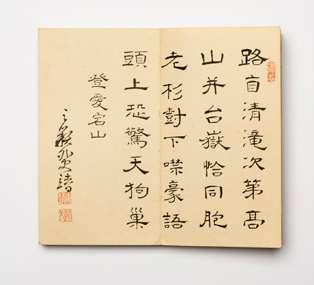 路盲清滝次第高
山并台嶽恰同胞
老杉對下喋豪語
頭上恐驚天狗巢
登愛宕山